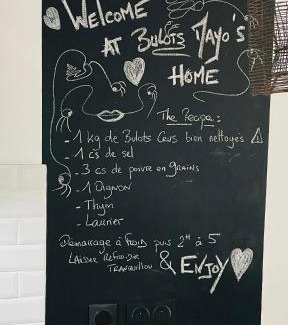 WELCOME
AT BULOTS MAYO'S
HOME
The Recipe :
- 1 kg de Bulots Crus bien nettoyés
- 1 cs de sel
- 3 cs de poivre en GRAINS
- 1 Oignon
- Thym
- Laurier
Démarrage à froid puis 2H à 5
LAISSER Refroidir
TRANQUILLOU & ENJOY